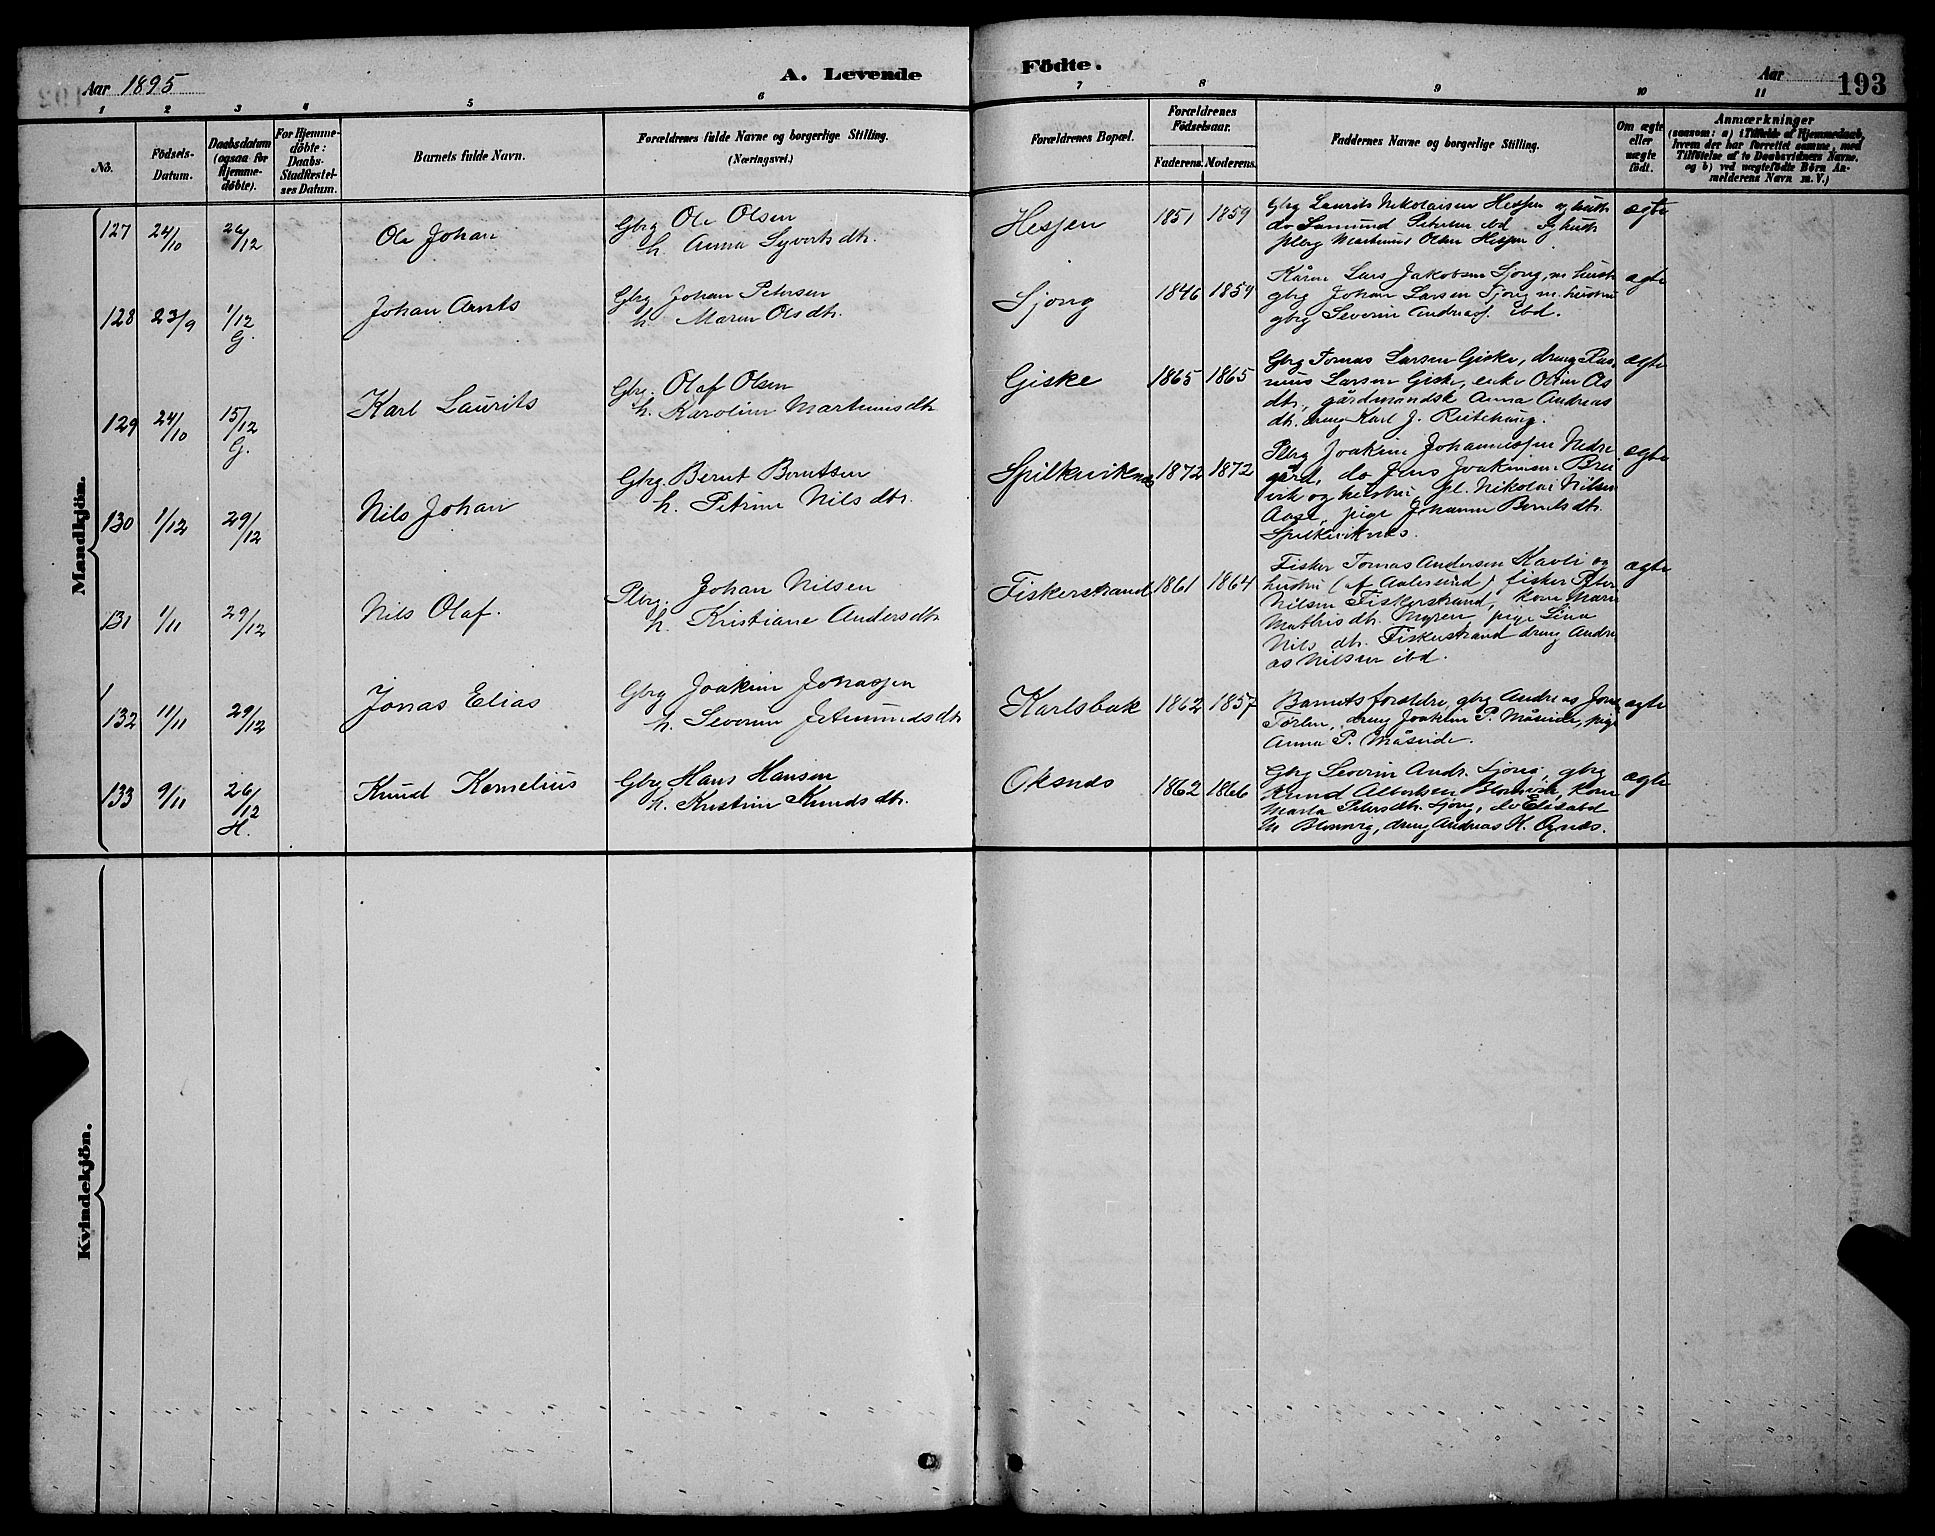 Aar 1895
A. Levende
Födte.
Aar
193
1 2 3 4 5 6 7 8 9 10 11
No.
Födsels-
Datum.
Daabsdatum
(ogsaa for
Hjemme-
döbte).
For Hjemme-
döbte:
Daabs-
Stadfæstel-
ses Datum.
Barnets fulde Navn.
Forældrenes fulde Navne og borgerlige Stilling.
(Næringsvei.)
Forældrenes Bopæl.
Forældrenes
Födselsaar.
Faderens.
Moderens.
Faddernes Navne og borgerlige Stilling.
Om ægte
eller
uægte
födt.
Anmærkninger
(saasom: a) i Tilfælde af Hjemmedaab,
hvem der har forrettet samme, med
Tilföielse af to Daabsvidners Navne.
og b) ved uægtefödte Börn An-
melderens Navn m. V.)
Mandkjön.
127 24/10 26/12 Ole Johan
Gbrg Ole Olsen
h. Anna Syverts dtr.
Hesjen 1851 1859
Gbrg Laurits Nikolaisen Hesjen og hustr
do Samund Petersen ibd. og hustr
plbrg Martinus Olsen Hesjen
ægte
128 23/9 1/12 G. Johan Arnts
Gbrg Johan Petersen
h. Maren Ols dtr.
Sjong 1846 1854
Kårm Lars Jakobsen Sjong, m. hustr
gbrg Johan Larsen Sjong m. hustru
gbrg Severin Andreas. ibd.
ægte
129 24/10 15/12 G. Karl Laurits
Gbrg. Olaf Olsen
h. Karoline Martinus dtr
Giske 1865 1865
Gbrg Tomas Larsen Giske, dreng Ras
mus Larsen Giske, enke Oline As
dtr., gårdmandsk Anna Andreas
dtr. dreng Karl J.
ægte
130 1/12 29/12 Nils Johan
Gbrg. Bernt Berntsen
h. Petrine Nils dtr.
Spilkeviknes 1872 1872
Plbrg Joakim Johannessen Nedre
gård, do Jens Joakimsen Brei
vik og hustru, gl. Nikolai Nilsen
Aase, pige Johanne Bernts dtr.
Spilkeviknes.
ægte
131 1/11 29/12 Nils Olaf.
Plbrg. Johan Nilsen
h. Kristiane Anders dtr
Fiskerstrand 1861 1864
Fisker Tomas Andersen Kavli og
hustru (af Aalesund), fisker Peter
Nilsen Fiskerstrand, kone Marie
Mathis dtr. Myren pige Lina
Nils dtr. Fiskerstrand dreng Andre
as Nilsen ibd.
ægte
132 11/11 29/12 Jonas Elias
Gbrg Joakim Jonassen
h. Severine Jetmunds dtr
Karlsbak 1862 1857
Barnets forældre, gbrg Andreas Jons.
Tørlen, dreng Joakim P. Måseide, pige
Anna P. Måseide.
ægte
133 9/11 26/12 H. Knud Kornelius
Gbrg Hans Hansen
h. Kristine Knuds dtr.
Oksnes 1862 1866
Gbrg Severin Andr. Sjong, gbrg
Knud Albertsen Blomvik, kone
Marta Peters dtr. Sjong, do Elisabd
M. Blomvig, dreng Andreas H. Oxnes.
ægte
Kvindekjön.